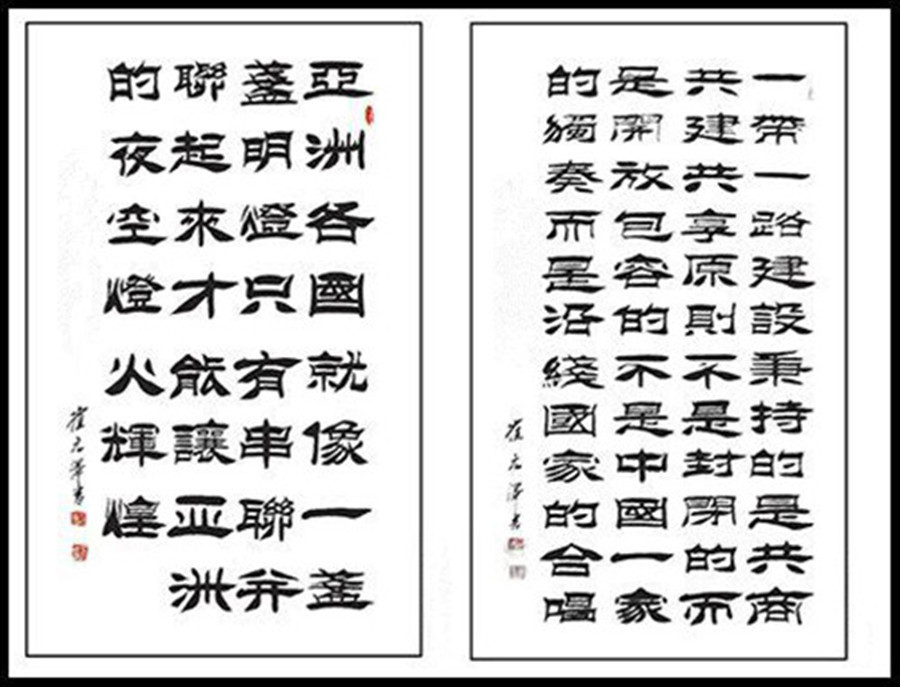 一帶一路建設秉持的是共商
共建共享原則不是封閉的而
是開放包容的不是中國一家
的獨奏而是沿綫國家的合唱
亞洲各國就像一盞
盞明燈只有串聯并
聯起來才能讓亞洲
的夜空燈火輝煌